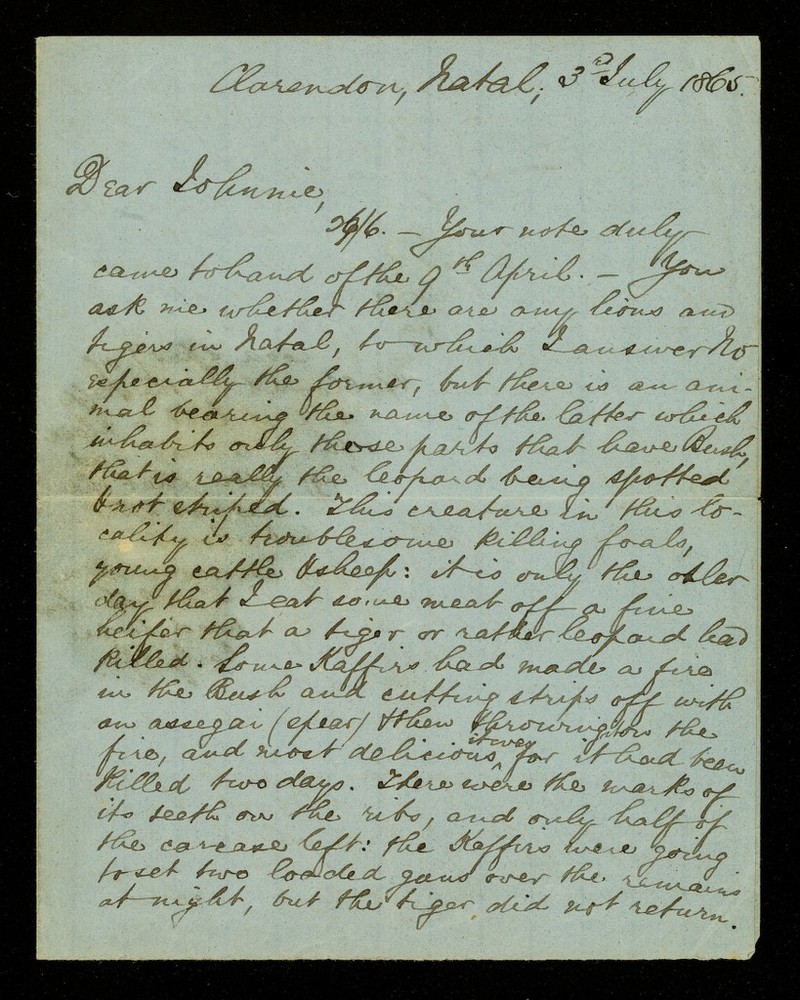 Clarendon, Natal, 3rd July 1865.
Dear Johnnie,
— Your note duly
came to hand of the 9th April. — You
ask me whether there are any lions and
tigers in Natal, to which I answer No
especially the former, but there is an ani-
mal bearing the name of the latter which
inhabits only those parts that have Bush,
that is really the leopard being spotted
& not striped. This creature in this lo-
cality is troublesome killing foals,
young cattle & sheep: it is only the other
day that I eat some meat off a fine
heifer that a tiger or rather leopard had
killed. Some Kaffirs had made a fire
in the Bush and cutting strips off with
an assegai (spear) & then throwing on the
fire, and most delicious it was, for it had been
killed two days. There were the marks of
its teeth on the ribs, and only half of
the carcase left: the Kaffirs were going
to set two loaded guns over the remains
at night, but the tiger did not return.